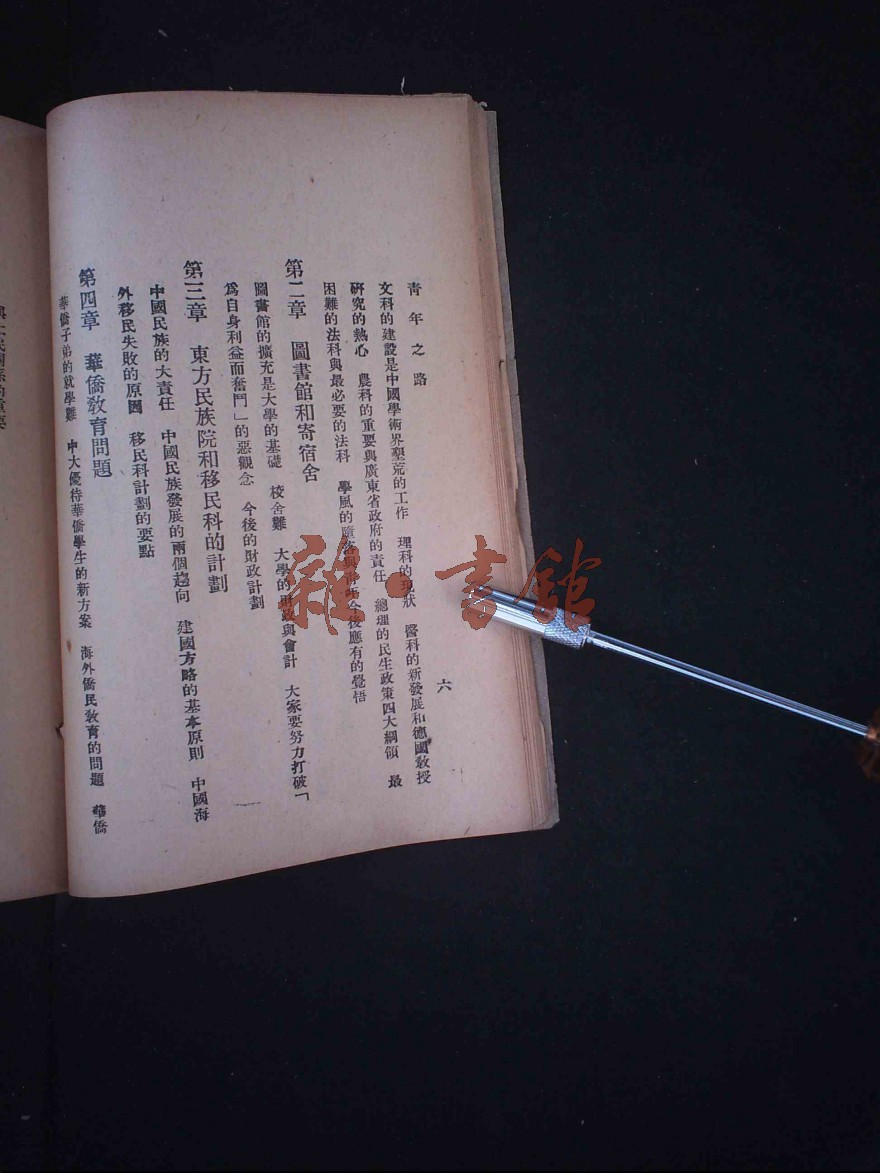 青年之路
六
文科的建設是中國學術界墾荒的工作　理科的現狀　醫科的新發展和德國敎授
研究的熱心　農科的重要與廣東省政府的責任　總理的民生政策四大綱領　最
困難的法科與最必要的法科　學風的墮落與今後應有的覺悟
第二章　圖書館和寄宿舍
圖書館的擴充是大學的基礎　校舍難　大學的財政與會計　大家要努力打破「
爲自身利益而奮鬥」的惡觀念　今後的財政計劃
第三章　東方民族院和移民科的計劃
中國民族的大責任　中國民族發展的兩個趨向　建國方略的基本原則　中國海
外移民失敗的原因　移民科計劃的要點
第四章　華僑敎育問題
華僑子弟的就學難　中大優待華僑學生的新方案　海外僑民敎育的問題　華僑
雜·書館